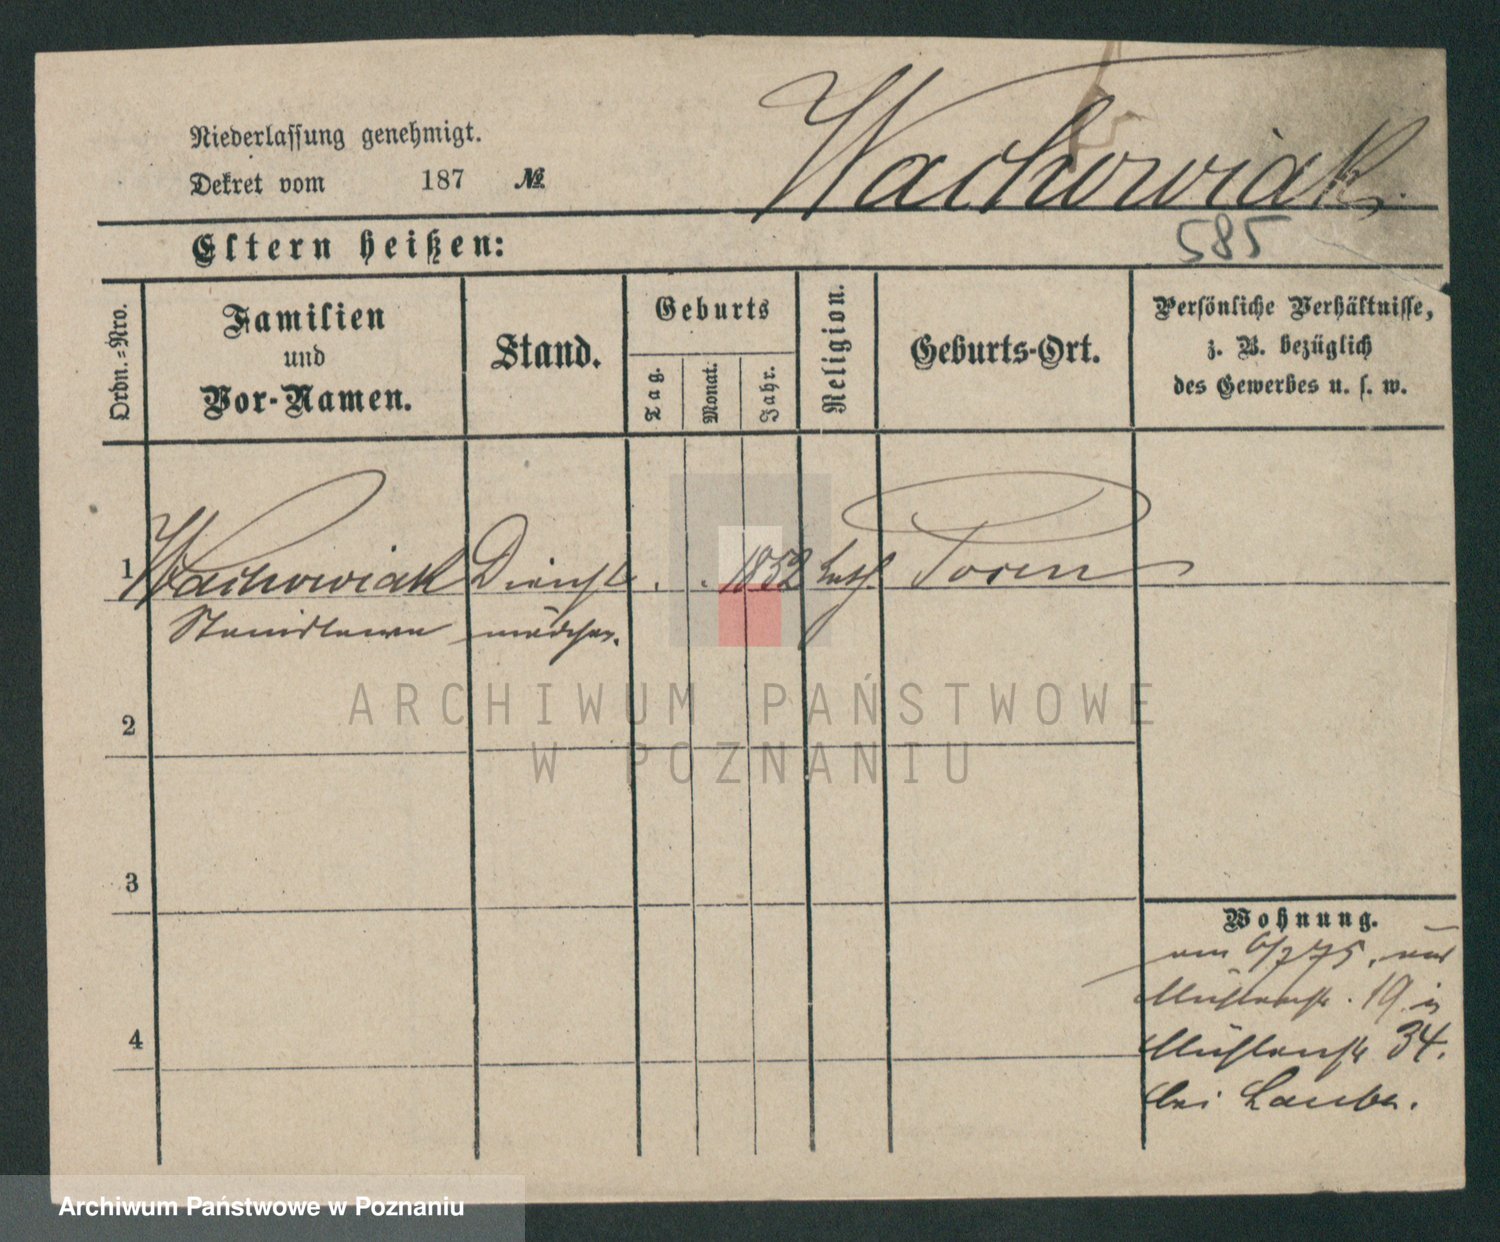 Wachowiak.
Niederlassung genehmigt.
Dekret vom 187 №
585
Eltern heißen:
Ordn.-Nro.
Familien
und
Vor-Namen.
Stand.
Geburts
Tag.
Monat.
Jahr.
Religion.
Geburts-Ort.
Persönliche Verhältnisse,
z. B. bezüglich
des Gewerbes u. s. w.
1 Wachowiak Dienst . . 1852 kath Posen
Stanislawa mädchen.
ARCHIWUM PAŃSTWOWE
W POZNANIU
2
3
4
Wohnung.
am 6/7 75,
Mühlenstr. 19 in
Mühlenstr 34.
bei
Archiwum Państwowe w Poznaniu